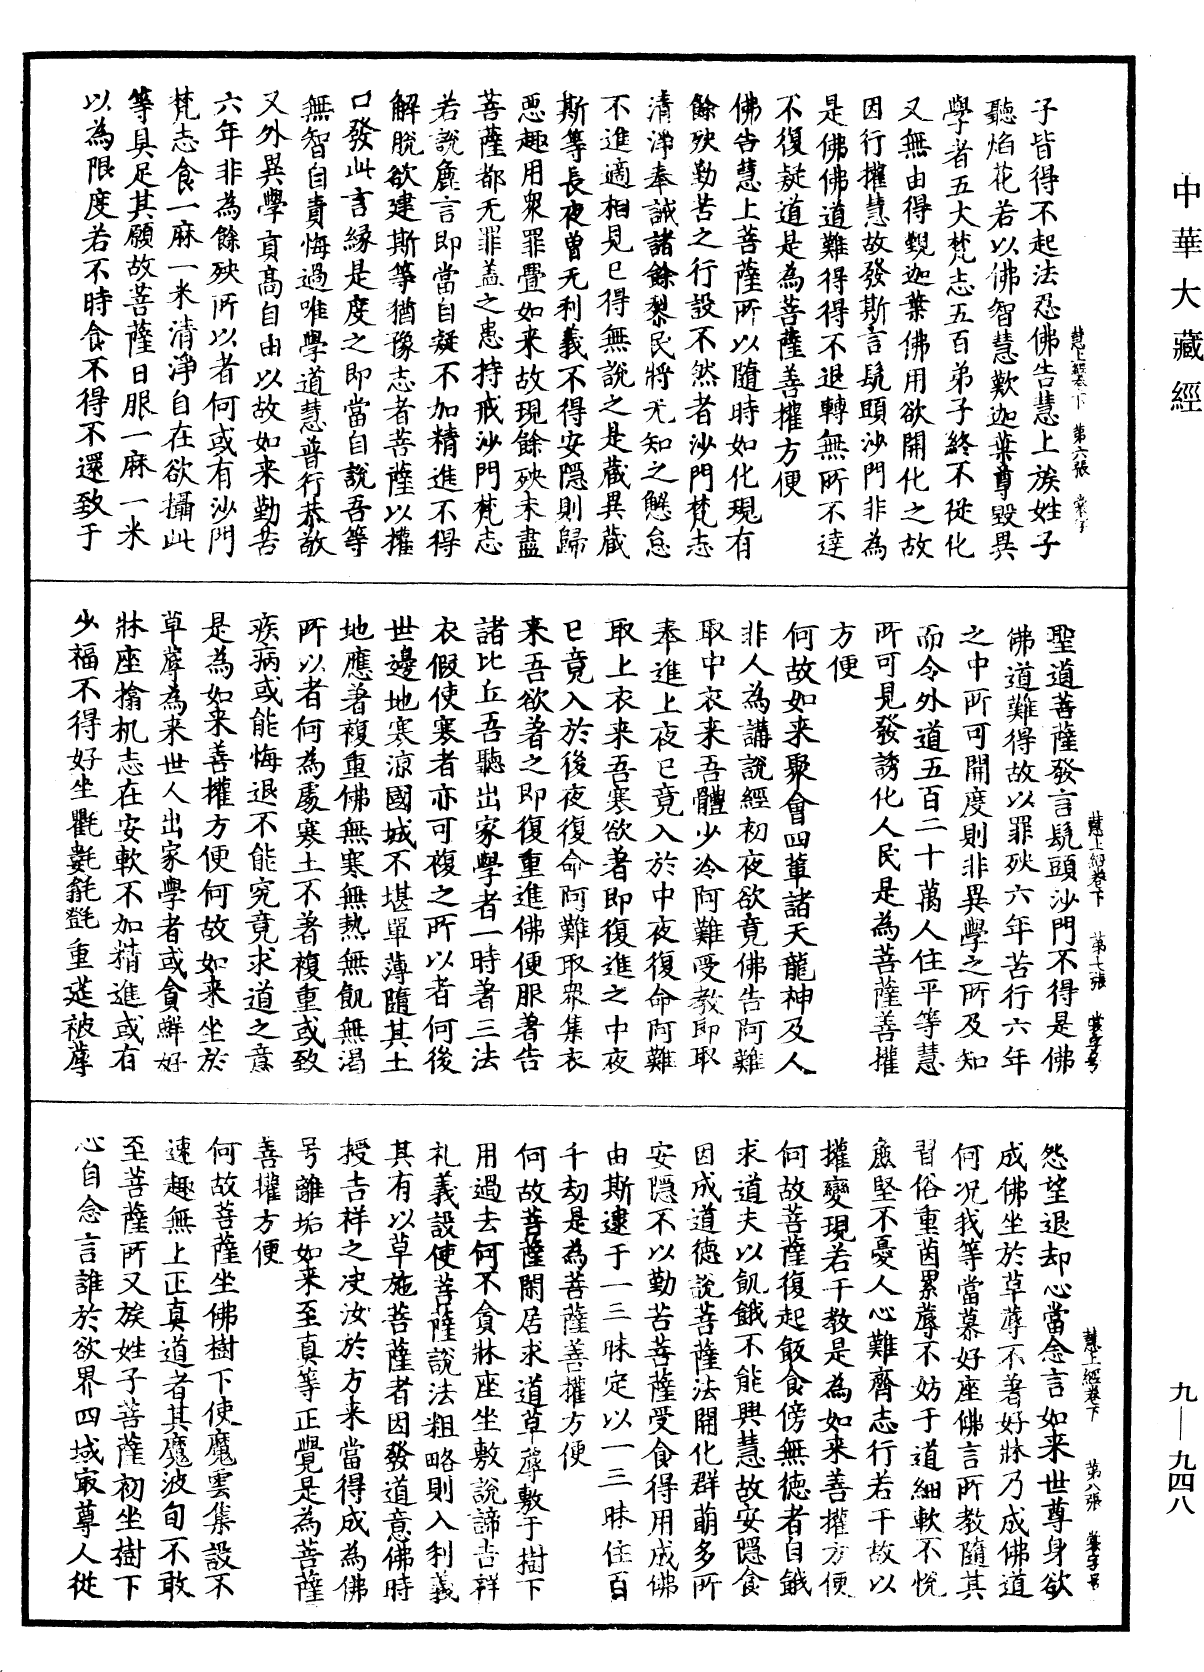 中華大藏經
慧上經卷下　第六張　裳字
子皆得不起法忍佛告慧上族姓子
聽焰花若以佛智慧歎迦葉尊毀異
學者五大梵志五百弟子終不從化
又無由得覲迦葉佛用欲開化之故
因行權慧故發斯言髡頭沙門非為
是佛佛道難得得不退轉無所不達
不復疑道是為菩薩善權方便
佛告慧上菩薩所以隨時如化現有
餘殃勤苦之行設不然者沙門梵志
清淨奉誡諸餘黎民將无知之懈怠
不進適相見已得無說之是藏異藏
斯等長夜曾无利義不得安隱則歸
惡趣用眾罪疊如来故現餘殃未盡
菩薩都无罪盖之患持戒沙門梵志
若說麁言即當自疑不加精進不得
解脫欲建斯等猶豫志者菩薩以權
口發此言緣是度之即當自說吾等
無智自責悔過唯學道慧普行恭敬
又外異學貢高自由以故如来勤苦
六年非為餘殃所以者何或有沙門
梵志食一麻一米清淨自在欲攝此
等具足其願故菩薩日服一麻一米
以為限度若不時食不得不還致于
慧上經卷下　第七張　裳字号
聖道菩薩發言髡頭沙門不得是佛
佛道難得故以罪殃六年苦行六年
之中所可開度則非異學之所及知
而令外道五百二十萬人住平等慧
所可見發誘化人民是為菩薩善權
方便
何故如来聚會四輩諸天龍神及人
非人為講說經初夜欲竟佛告阿難
取中衣来吾體少冷阿難受教即取
奉進上夜已竟入於中夜復命阿難
取上衣来吾寒欲著即復進之中夜
已竟入於後夜復命阿難取眾集衣
来吾欲著之即復重進佛便服著告
諸比丘吾聽出家學者一時著三法
衣假使寒者亦可複之所以者何後
世邊地寒涼國城不堪單薄隨其土
地應著複重佛無寒無熱無飢無渴
所以者何為處寒土不著複重或致
疾病或能悔退不能究竟求道之意
是為如来善權方便何故如来坐於
草蓐為来世人出家學者或貪鮮好
牀座搚机志在安軟不加精進或有
少福不得好坐氍𣰅㲪㲪重莚被蓐
慧上經卷下　第八張　裳字号
怨望退却心當念言如来世尊身欲
成佛坐於草蓐不著好牀乃成佛道
何況我等當慕好座佛言所教隨其
習俗重茵累蓐不妨于道細軟不悅
麁堅不憂人心難齊志行若干故以
權變現若干教是為如来善權方便
何故菩薩復起飯食傍無德者自餓
求道夫以飢餓不能興慧故安隱食
因成道德說菩薩法開化群萌多所
安隱不以勤苦菩薩受食得用成佛
由斯逮于一三昧定以一三昧住百
千劫是為菩薩善權方便
何故菩薩閑居求道草蓐敷于樹下
用過去何不貪牀座坐敷說諦吉祥
礼義設使菩薩說法粗略則入利義
其有以草施菩薩者因發道意佛時
授吉祥之决汝於方来當得成為佛
号離垢如来至真等正覺是為菩薩
善權方便
何故菩薩坐佛樹下使魔雲集設不
速趣無上正真道者其魔波旬不敢
至菩薩所又族姓子菩薩初坐樹下
心自念言誰於欲界四域冣尊人從
九—九四八